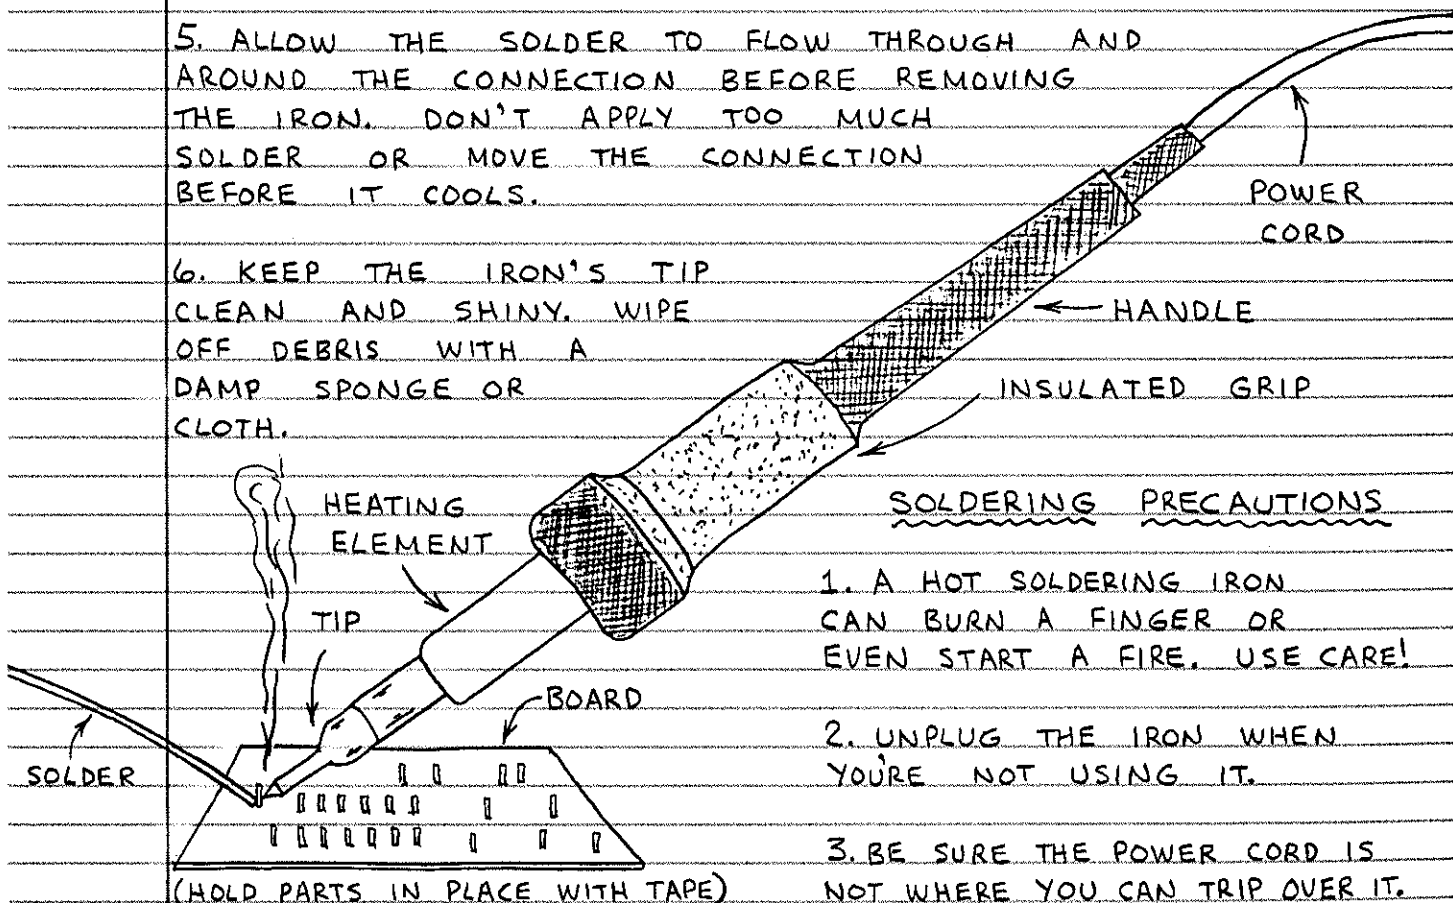 5. ALLOW THE SOLDER TO FLOW THROUGH AND
AROUND THE CONNECTION BEFORE REMOVING
THE IRON. DON'T APPLY TOO MUCH
SOLDER OR MOVE THE CONNECTION
BEFORE IT COOLS.
6. KEEP THE IRON'S TIP
CLEAN AND SHINY. WIPE
OFF DEBRIS WITH A
DAMP SPONGE OR
CLOTH.
POWER
CORD
HANDLE
INSULATED GRIP
HEATING
ELEMENT
TIP
SOLDER
BOARD
(HOLD PARTS IN PLACE WITH TAPE)
SOLDERING PRECAUTIONS
1. A HOT SOLDERING IRON
CAN BURN A FINGER OR
EVEN START A FIRE. USE CARE!
2. UNPLUG THE IRON WHEN
YOU'RE NOT USING IT.
3. BE SURE THE POWER CORD IS
NOT WHERE YOU CAN TRIP OVER IT.